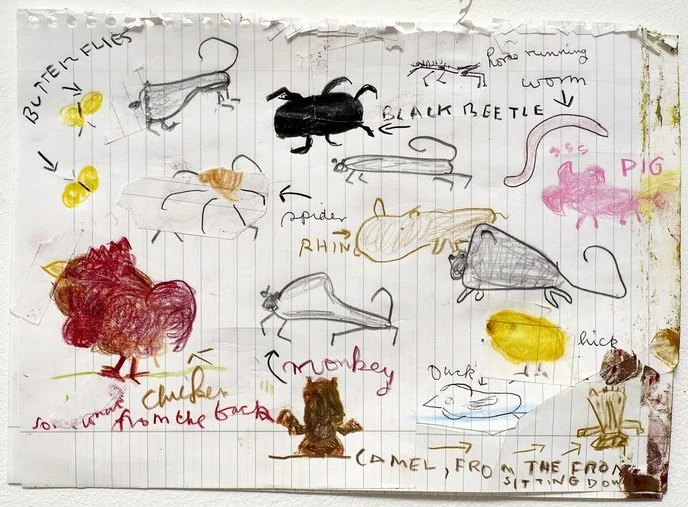 BUTTERFLIES
horse running
worm
BLACK BEETLE
PIG
spider
RHINO
chick
Duck
monkey
chicken
somewhat from the back
CAMEL, FROM THE FRONT
SITTING DOWN